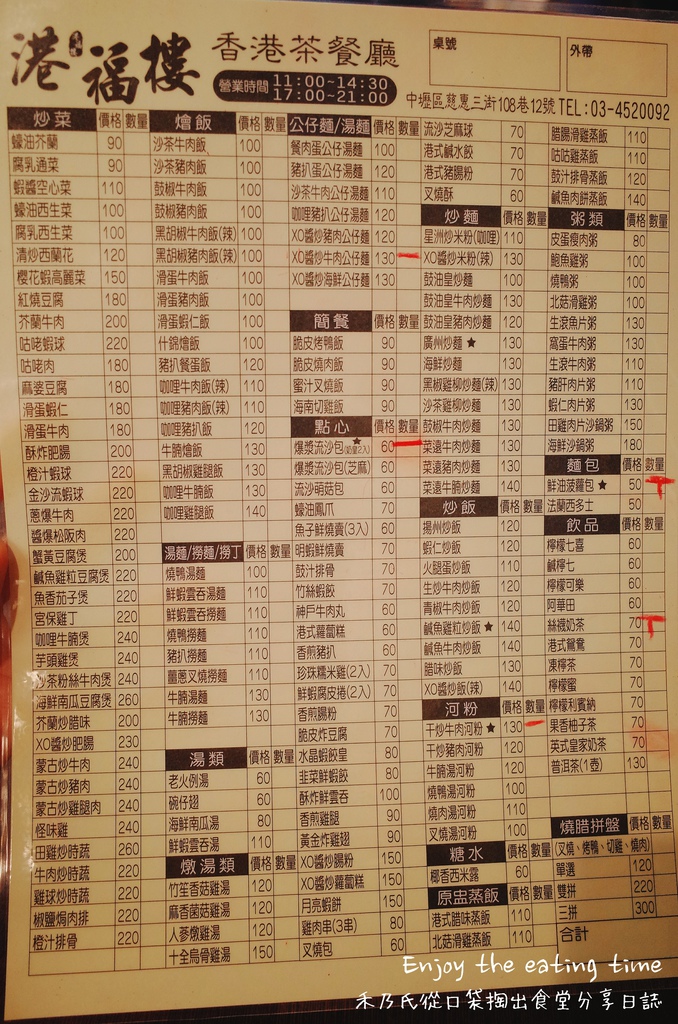 港福樓 香港茶餐廳
營業時間 11:00~14:30
17:00~21:00
桌號
外帶
中壢區慈惠三街108巷12號 TEL:03-4520092
炒菜 價格 數量
蠔油芥蘭 90
腐乳通菜 90
蝦醬空心菜 110
蠔油西生菜 100
腐乳西生菜 100
清炒西蘭花 120
櫻花蝦高麗菜 150
紅燒豆腐 180
芥蘭牛肉 200
咕咾蝦球 220
咕咾肉 180
麻婆豆腐 180
滑蛋蝦仁 180
滑蛋牛肉 180
酥炸肥腸 200
橙汁蝦球 220
金沙流蝦球 220
蔥爆牛肉 220
醬爆松阪肉 220
蟹黃豆腐煲 200
鹹魚雞粒豆腐煲 220
魚香茄子煲 220
宮保雞丁 220
咖哩牛腩煲 240
芋頭雞煲 240
沙茶粉絲牛肉煲 240
海鮮南瓜豆腐煲 260
芥蘭炒腊味 200
XO醬炒肥腸 230
蒙古炒牛肉 240
蒙古炒豬肉 240
蒙古炒雞腿肉 240
怪味雞 240
田雞炒時蔬 260
牛肉炒時蔬 220
雞球炒時蔬 220
椒鹽焗肉排 220
橙汁排骨 220
燴飯 價格 數量
沙茶牛肉飯 100
沙茶豬肉飯 100
豉椒牛肉飯 100
豉椒豬肉飯 100
黑胡椒牛肉飯(辣) 100
黑胡椒豬肉飯(辣) 100
滑蛋牛肉飯 100
滑蛋豬肉飯 100
滑蛋蝦仁飯 100
什錦燴飯 100
豬扒餐蛋飯 120
咖哩牛肉飯(辣) 110
咖哩豬肉飯(辣) 110
咖哩豬扒飯 120
牛腩燴飯 130
黑胡椒雞腿飯 130
咖哩牛腩飯 130
咖哩雞腿飯 140
湯麵/撈麵/撈丁 價格 數量
燒鴨湯麵 100
鮮蝦雲吞湯麵 110
鮮蝦雲吞撈麵 110
燒鴨撈麵 110
豬扒撈麵 110
薑蔥叉燒撈麵 110
牛腩湯麵 130
牛腩撈麵 130
湯類 價格 數量
老火例湯 60
碗仔翅 60
海鮮南瓜湯 80
鮮蝦雲吞湯 110
燉湯類 價格 數量
竹笙香菇雞湯 120
麻香菌菇雞湯 120
人蔘燉雞湯 120
十全烏骨雞湯 150
公仔麵/湯麵 價格 數量
餐肉蛋公仔湯麵 100
豬扒蛋公仔湯麵 120
沙茶牛肉公仔湯麵 110
咖哩豬扒公仔湯麵 120
XO醬炒豬肉公仔麵 120
XO醬炒牛肉公仔麵 130
XO醬炒海鮮公仔麵 130
簡餐 價格 數量
脆皮烤鴨飯 90
脆皮燒肉飯 90
蜜汁叉燒飯 90
海南切雞飯 90
點心 價格 數量
爆漿流沙包★(奶皇2入) 60
爆漿流沙包(芝麻) 60
流沙萌菇包 60
蠔油鳳爪 70
魚子鮮燒賣(3入) 70
明蝦鮮燒賣 70
豉汁排骨 70
竹絲蝦餃 70
神戶牛肉丸 60
港式蘿蔔糕 60
香煎豬扒 60
珍珠糯米雞(2入) 70
鮮蝦腐皮捲(2入) 70
香煎腸粉 70
脆皮炸豆腐 70
水晶蝦餃皇 80
韭菜鮮蝦餃 80
酥炸鮮雲吞 80
香煎雞腿 90
黃金炸雞翅 90
XO醬炒腸粉 150
XO醬炒蘿蔔糕 150
月亮蝦餅 150
雞肉串(3串) 80
叉燒包 60
流沙芝麻球 70
港式鹹水餃 70
港式豬腸粉 70
叉燒酥 60
炒麵 價格 數量
星洲炒米粉(咖哩) 110
XO醬炒米粉(辣) 130
豉油皇炒麵 100
豉油皇牛肉炒麵 130
豉油皇豬肉炒麵 120
廣州炒麵★ 130
海鮮炒麵 130
黑椒雞柳炒麵(辣) 130
沙茶雞柳炒麵 130
豉椒牛肉炒麵 130
菜遠牛肉炒麵 130
菜遠豬肉炒麵 120
菜遠牛腩炒麵 140
炒飯 價格 數量
揚州炒飯 120
蝦仁炒飯 120
火腿蛋炒飯 110
生炒牛肉炒飯 120
青椒牛肉炒飯 120
鹹魚雞粒炒飯★ 140
鹹魚牛肉炒飯 140
腊味炒飯 130
XO醬炒飯(辣) 140
河粉 價格 數量
干炒牛肉河粉★ 130
干炒豬肉河粉 120
牛腩湯河粉 120
燒鴨湯河粉 100
燒肉湯河粉 100
叉燒湯河粉 100
糖水 價格 數量
椰香西米露 60
原盅蒸飯 價格 數量
港式腊味蒸飯 110
北菇滑雞蒸飯 110
腊腸滑雞蒸飯 110
咕咕雞蒸飯 110
豉汁排骨蒸飯 120
鹹魚肉餅蒸飯 140
粥類 價格 數量
皮蛋瘦肉粥 80
鮑魚雞粥 130
燒鴨粥 130
北菇滑雞粥 130
生滾魚片粥 130
窩蛋牛肉粥 130
生滾牛肉粥 110
豬肝肉片粥 110
蝦仁肉片粥 130
田雞肉片砂鍋粥 150
海鮮砂鍋粥 180
麵包 價格 數量
鮮油菠蘿包★ 50
法蘭西多士 50
飲品 價格 數量
檸檬七喜 60
鹹檸七 60
檸檬可樂 60
阿華田 60
絲襪奶茶 70
港式鴛鴦 70
凍檸茶 70
檸檬蜜 70
檸檬利賓納 70
果香柚子茶 70
英式皇家奶茶 70
普洱茶(1壺) 130
燒腊拼盤 價格 數量
(叉燒、烤鴨、切雞、燒肉)
單選 120
雙拼 220
三拼 300
合計
Enjoy the eating time
禾乃氏從口袋掏出食堂分享日誌